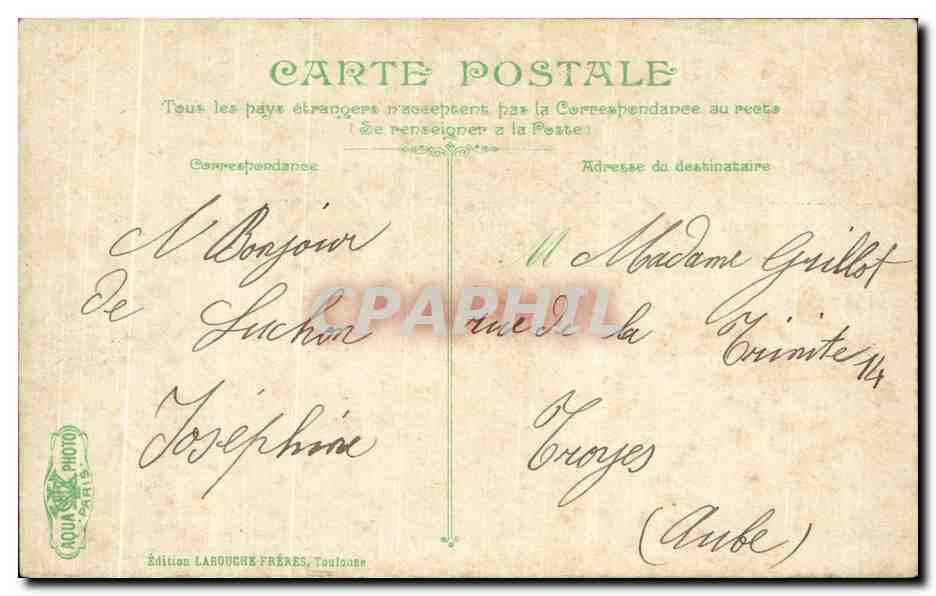 CARTE POSTALE
Tous les pays étrangers n'acceptent pas la Correspondance au recto
(Se renseigner a la Poste)
Correspondance
Bonjour
de Luchon
Joséphine
Adresse du destinataire
M Madame Grillot
rue de la Trinite 14
Troyes
(Aube)
CPAPHIL
AQUA PHOTO
PARIS
Édition LABOUCHE FRÈRES, Toulouse